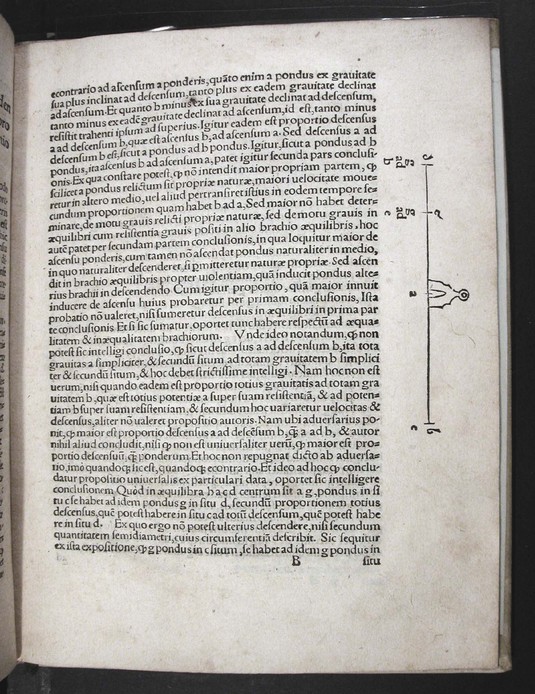 econtrario ad ascensum a ponderis, quãto enim a pondus ex grauitate
sua plus inclinat ad descensum, tanto plus ex eadem grauitate declinat
ad ascensum. Et quanto b minus ex sua grauitate declinat ad descensum,
tanto minus ex eadẽ grauitate declinat ad ascensum, id est, tanto minus
resistit trahenti ipsum ad superius. Igitur eadem est proportio descensus
a ad descensum b, quæ est ascensus b, ad ascensum a. Sed descensus a ad
descensum b est, sicut a pondus ad b pondus. Igitur, sicut a pondus ad b
pondus, ita ascensus b ad ascensum a, patet igitur secunda pars conclusi-
onis. Ex qua constare potest, ꝙ nõ intendit maior propriam partem, ꝙ
scilicet a pondus relictum sit propriæ naturæ, maiori uelocitate moue=
retur in altero medio, uel aliud pertransiret istius in eodem tempore se=
cundum proportionem quam habet b ad a. Sed maior nõ habet deter=
minare, de motu grauis relicti propriæ naturæ, sed de motu grauis in
æquilibri cum resistentia grauis positi in alio brachio æquilibris, hoc
autẽ patet per secundam partem conclusionis, in qua loquitur maior de
ascensu ponderis, cum tamen nõ ascendat pondus naturaliter in medio,
in quo naturaliter descenderet, si ꝑmitteretur naturæ propriæ. Sed ascen
dit in brachio æquilibris propter uiolentiam, quã inducit pondus alte=
rius brachii in descendendo Cum igitur proportio, quã maior innuit
inducere de ascensu huius probaretur per primam conclusionis, Ista
probatio nõ ualeret, nisi sumeretur descensus in æquilibri in prima par
te conclusionis. Et si sic sumatur, oportet tunc habere respectũ ad æqua=
litatem & inæqualitatem brachiorum. Vnde ideo notandum, ꝙ non
potest sic intelligi conclusio, ꝙ sicut descensus a ad descensum b, ita tota
grauitas a simpliciter, & secundũ situm ad totam grauitatem b simplici
ter & secundũ situm, & hoc debet strictissime intelligi. Nam hoc non est
uerum, nisi quando eadem est proportio totius grauitatis ad totam gra
uitatem b, quæ est totius potentiæ a super suam resistentiã, & ad poten=
tiam b super suam resistentiam, & secundum hoc uariaretur uelocitas &
descensus, aliter nõ ualeret propositio autoris. Nam ubi aduersarius po=
nit, ꝙ maior est proportio descensus a ad descẽsum b, ꝗ̃ a ad b, & autor
nihil aliud concludit, nisi ꝙ non est uniuersaliter uerũ, ꝙ maior est pro=
portio descensuũ, ꝗ̃ ponderum. Et hoc non repugnat dicto ab aduersa=
rio, imo quandoꝗ̃ sic est, quandoꝗ̃ econtrario. Et ideo ad hoc ꝙ conclu=
datur propositio uniuersalis ex particulari data, oportet sic intelligere
conclusionem. Quòd in æquilibra b a c d centrum sit a g, pondus in si
tu c se habet ad idem pondus g in situ d, secundũ proportionem totius
descensus, quẽ potest habere in situ c ad totũ descensum, quẽ potest habe
re in situ d. Ex quo ergo nõ potest ulterius descendere, nisi secundum
quantitatem semidiametri, cuius circumferentiã describit. Sic sequitur
ex ista expositione, ꝙ g pondus in c situm, se habet ad idem g pondus in
B situ